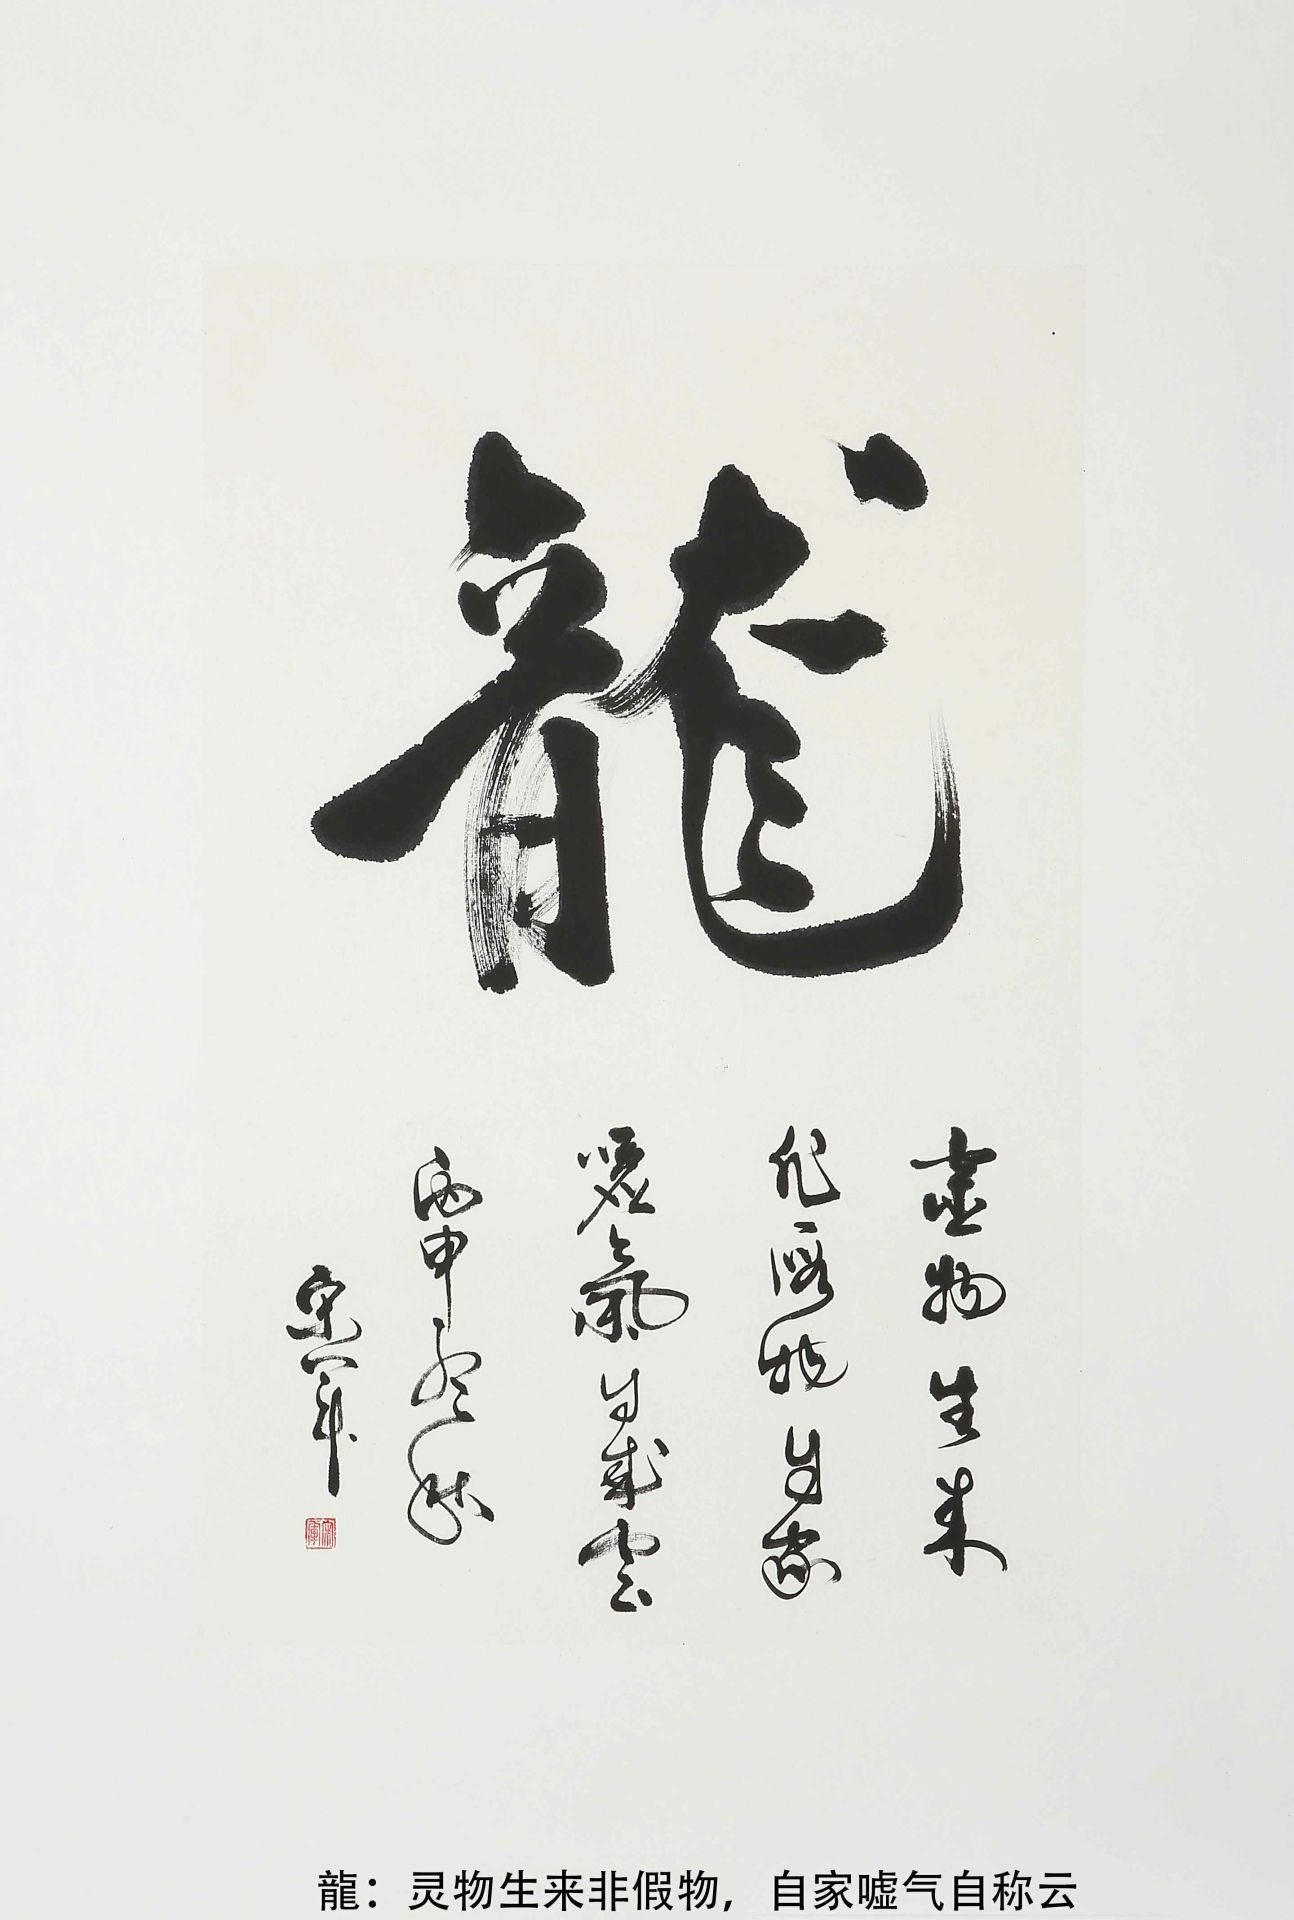 龍
靈物生来
非假物自家
嘘氣自成雲
丙申 秋
宋军
龍：灵物生来非假物，自家嘘气自称云